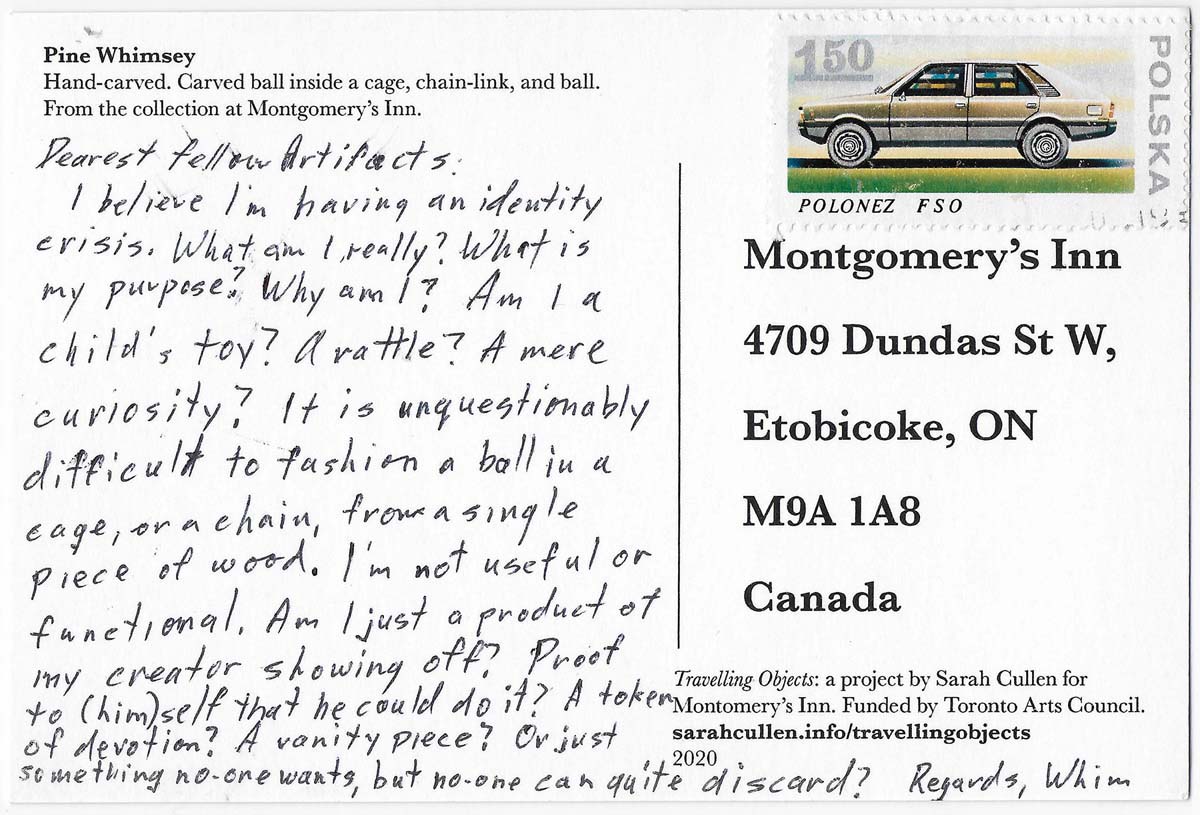 Pine Whimsey
Hand-carved. Carved ball inside a cage, chain-link, and ball.
From the collection at Montgomery's Inn.
Dearest fellow Artifacts:
I believe I'm having an identity
crisis. What am I really? What is
my purpose? Why am I? Am I a
child's toy? A rattle? A mere
curiosity? It is unquestionably
difficult to fashion a ball in a
cage, or a chain, from a single
piece of wood. I'm not useful or
functional. Am I just a product of
my creator showing off? Proof
to (him)self that he could do it? A token
of devotion? A vanity piece? Or just
something no-one wants, but no-one can quite discard? Regards, Whim
150
POLSKA
POLONEZ FSO
Montgomery's Inn
4709 Dundas St W,
Etobicoke, ON
M9A 1A8
Canada
Travelling Objects: a project by Sarah Cullen for
Montomery's Inn. Funded by Toronto Arts Council.
sarahcullen.info/travellingobjects
2020